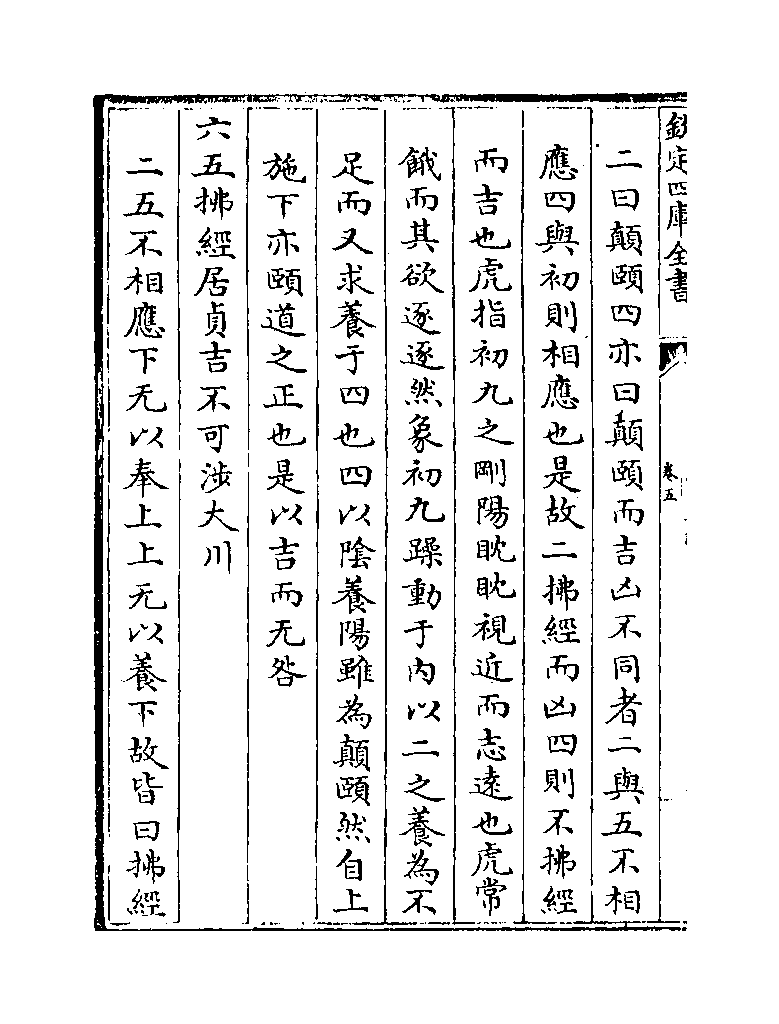 欽定四庫全書
卷五
二曰顛頤四亦曰顛頤而吉凶不同者二與五不相
應四與初則相應也是故二拂經而凶四則不拂經
而吉也虎指初九之剛陽眈眈視近而志遠也虎常
餓而其欲逐逐然象初九躁動于内以二之養為不
足而又求養于四也四以陰養陽雖為顛頤然自上
施下亦頤道之正也是以吉而无咎
六五拂經居貞吉不可涉大川
二五不相應下无以奉上上无以養下故皆曰拂經